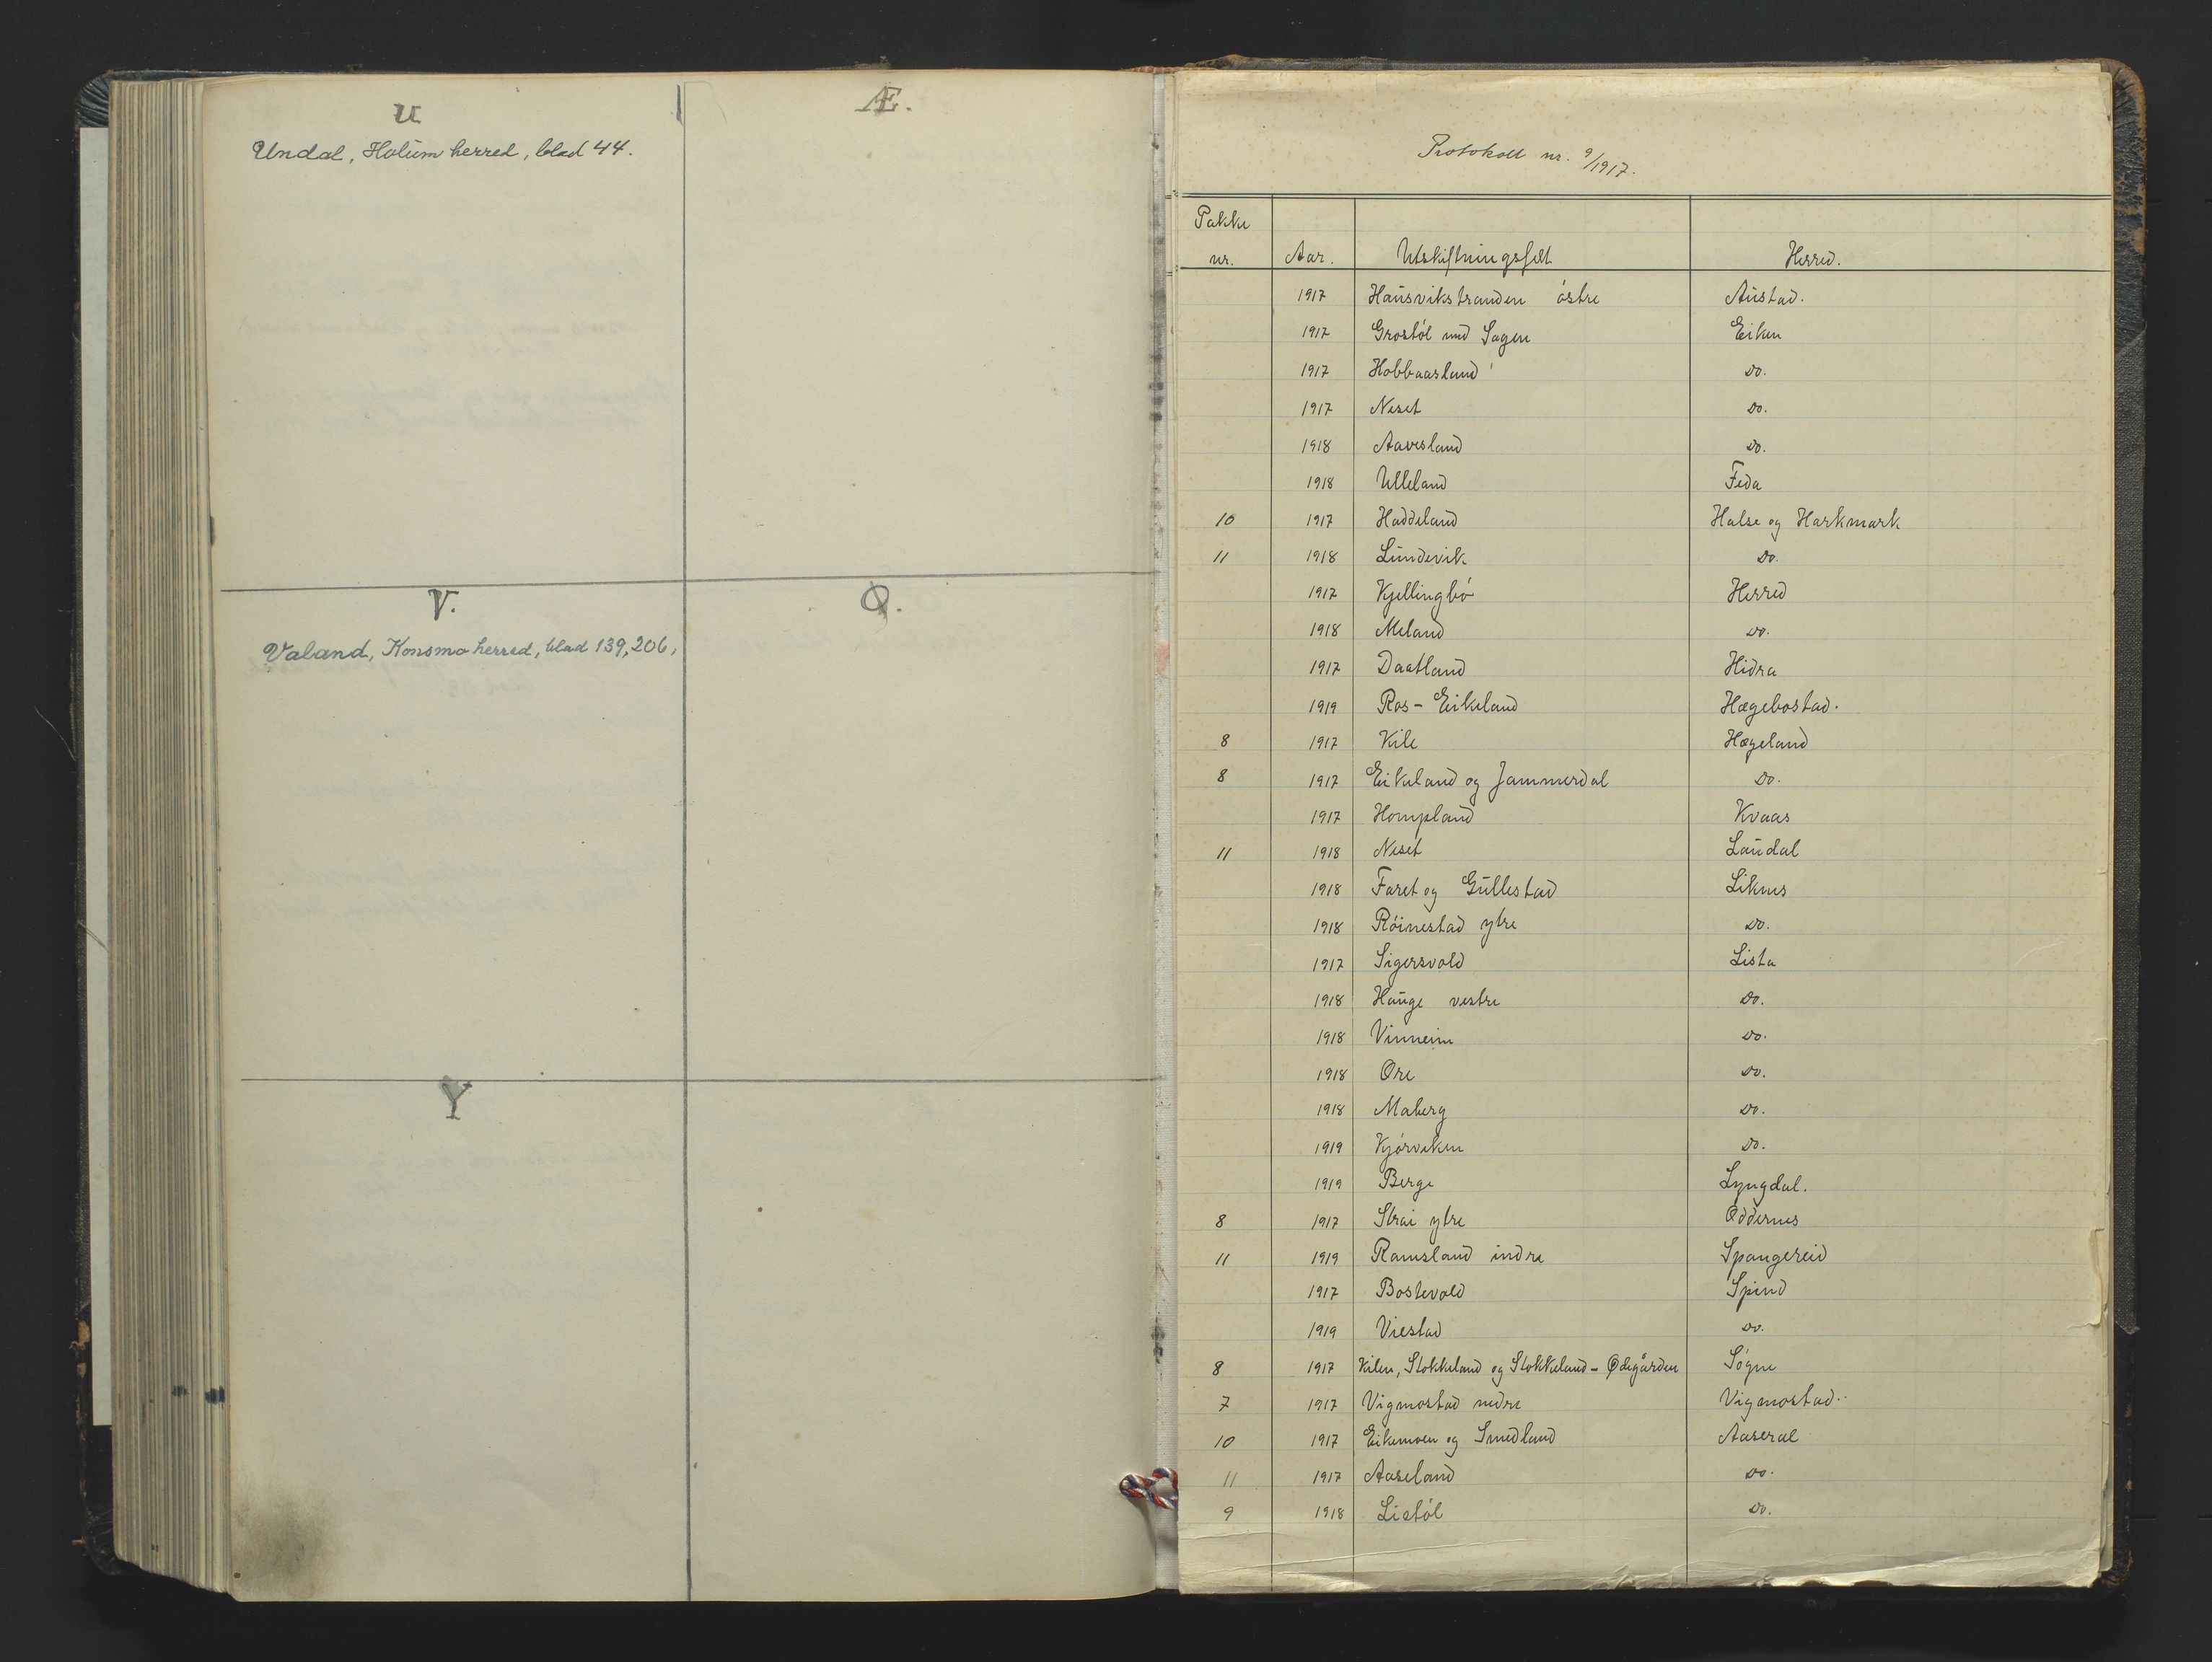 U
Undal, Holum herred, blad 44.
Æ.
V.
Valand, Konsmo herred, blad 139, 206,
Ø.
Y
Protokoll nr. 9/1917.
Pakke nr. Aar. Utskiftningsfelt Herred.
1917 Hausvikstranden østre Austad.
1917 Grostøl med Sagen Eiken
1917 Hobbaasland Do.
1917 Neset Do.
1918 Aavesland Do.
1918 Ulleland Feda
10 1917 Haddeland Halse og Harkmark
11 1918 Lundevik Do.
1917 Kjellingbø Herred
1918 Meland Do.
1917 Daatland Hidra
1919 Ros-Eikeland Hægebostad.
8 1917 Kile Hægeland
8 1917 Eikeland og Jammerdal Do.
1917 Hompland Kvaas
11 1918 Neset Laudal
1918 Faret og Gullestad Liknes
1918 Røinestad ytre Do.
1917 Sigersvold Lista
1918 Hauge vestre Do.
1918 Vinneim Do.
1918 Ore Do.
1918 Maberg Do.
1919 Kjørviken Do.
1919 Berge Lyngdal.
8 1917 Strai ytre Oddernes
11 1919 Ramsland indre Spangereid
1917 Bostevold Spind
1919 Viestad Do.
8 1917 Kilen, Stokkeland og Stokkeland - Ødegården Søgne
7 1917 Vigmostad nedre Vigmostad.
10 1917 Eikemoen og Smedland Aaseral
11 1917 Aaseland Do.
9 1918 Lietøl Do.